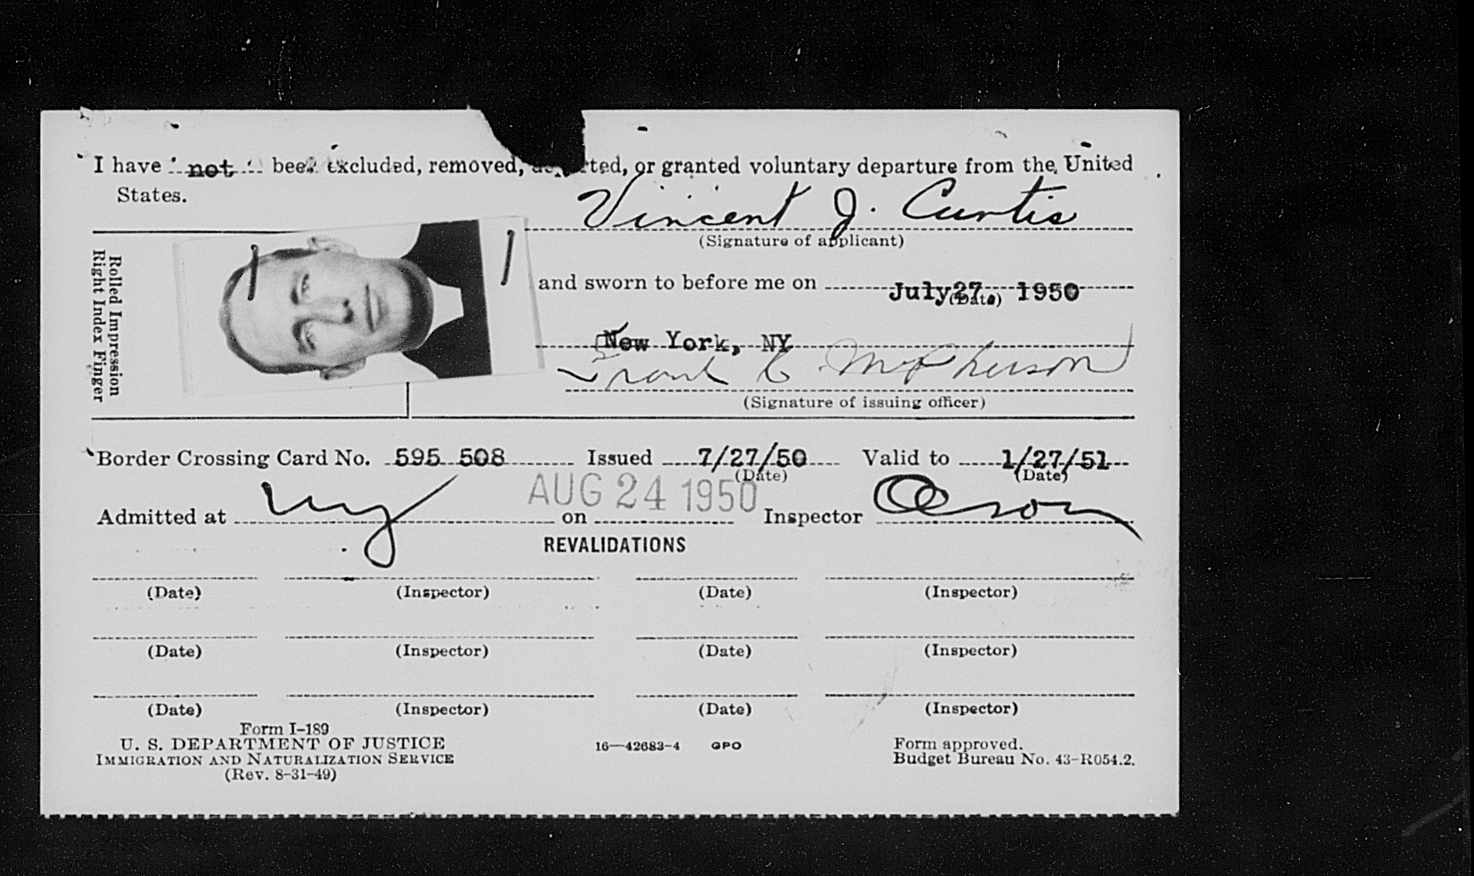 I have not been excluded, removed, deported, or granted voluntary departure from the United
States.
Vincent J. Curtis
(Signature of applicant)
Rolled Impression
Right Index Finger
and sworn to before me on July 27, 1950
(Date)
New York, NY
Frank C McPherson
(Signature of issuing officer)
Border Crossing Card No. 595 508 Issued 7/27/50 Valid to 1/27/51
(Date) (Date)
Admitted at NY on AUG 24 1950 Inspector
REVALIDATIONS
(Date) (Inspector) (Date) (Inspector)
(Date) (Inspector) (Date) (Inspector)
(Date) (Inspector) (Date) (Inspector)
Form I-189
U. S. DEPARTMENT OF JUSTICE
IMMIGRATION AND NATURALIZATION SERVICE
(Rev. 8-31-49)
16—42683-4 GPO
Form approved.
Budget Bureau No. 43-R054.2.